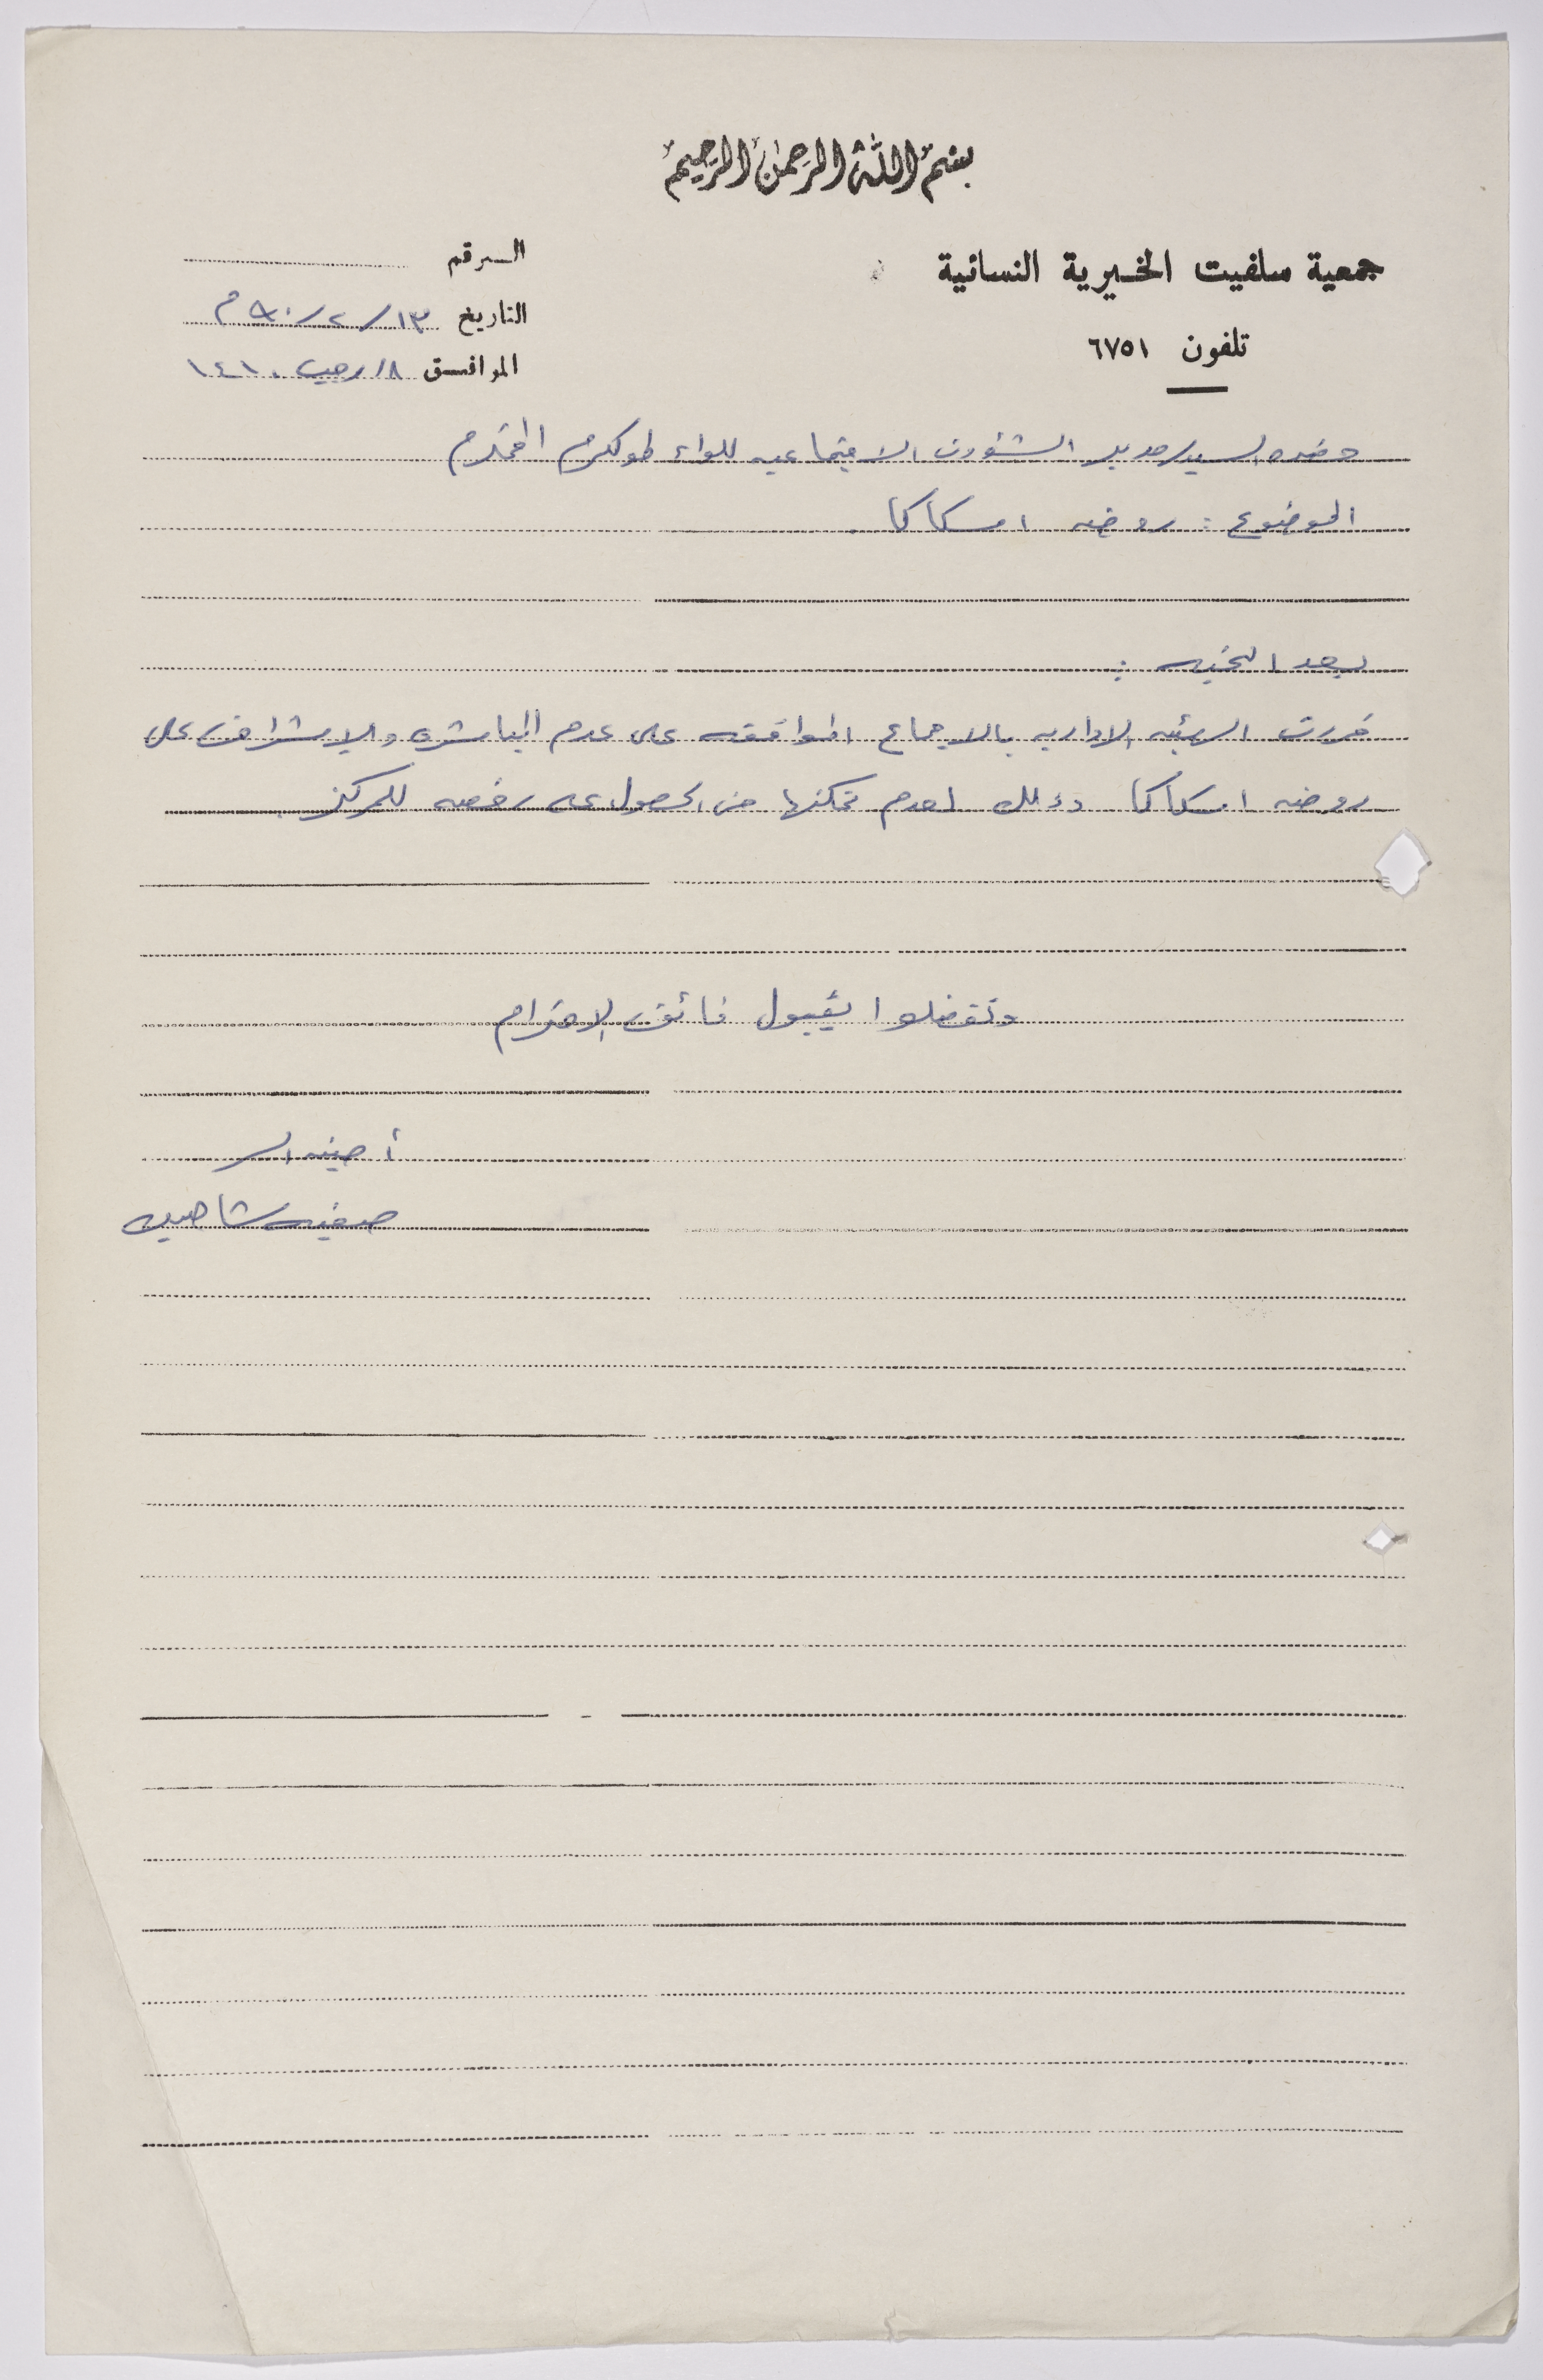 بسم الله الرحمن الرحيم
جمعية سلفيت الخيرية النسائية
تلفون ٦٧٥١
الرقم
التاريخ ١٣/٢/٩٠م
الموافق ١٨/رجب ١٤١٠
حضره السيد مدير الشؤون الاجتماعيه للواء طولكرم المحترم
الموضوع : روضه اسكاكا
بعد التحيه :
قررت الهيئه الاداريه بالاجماع الموافقه على عدم المباشره والاشراف على
روضه اسكاكا وذلك لعدم تمكنها من الحصول على رخصه للمركز
وتفضلوا بقبول فائق الاحترام
أمينه السر
صفيه شاهين